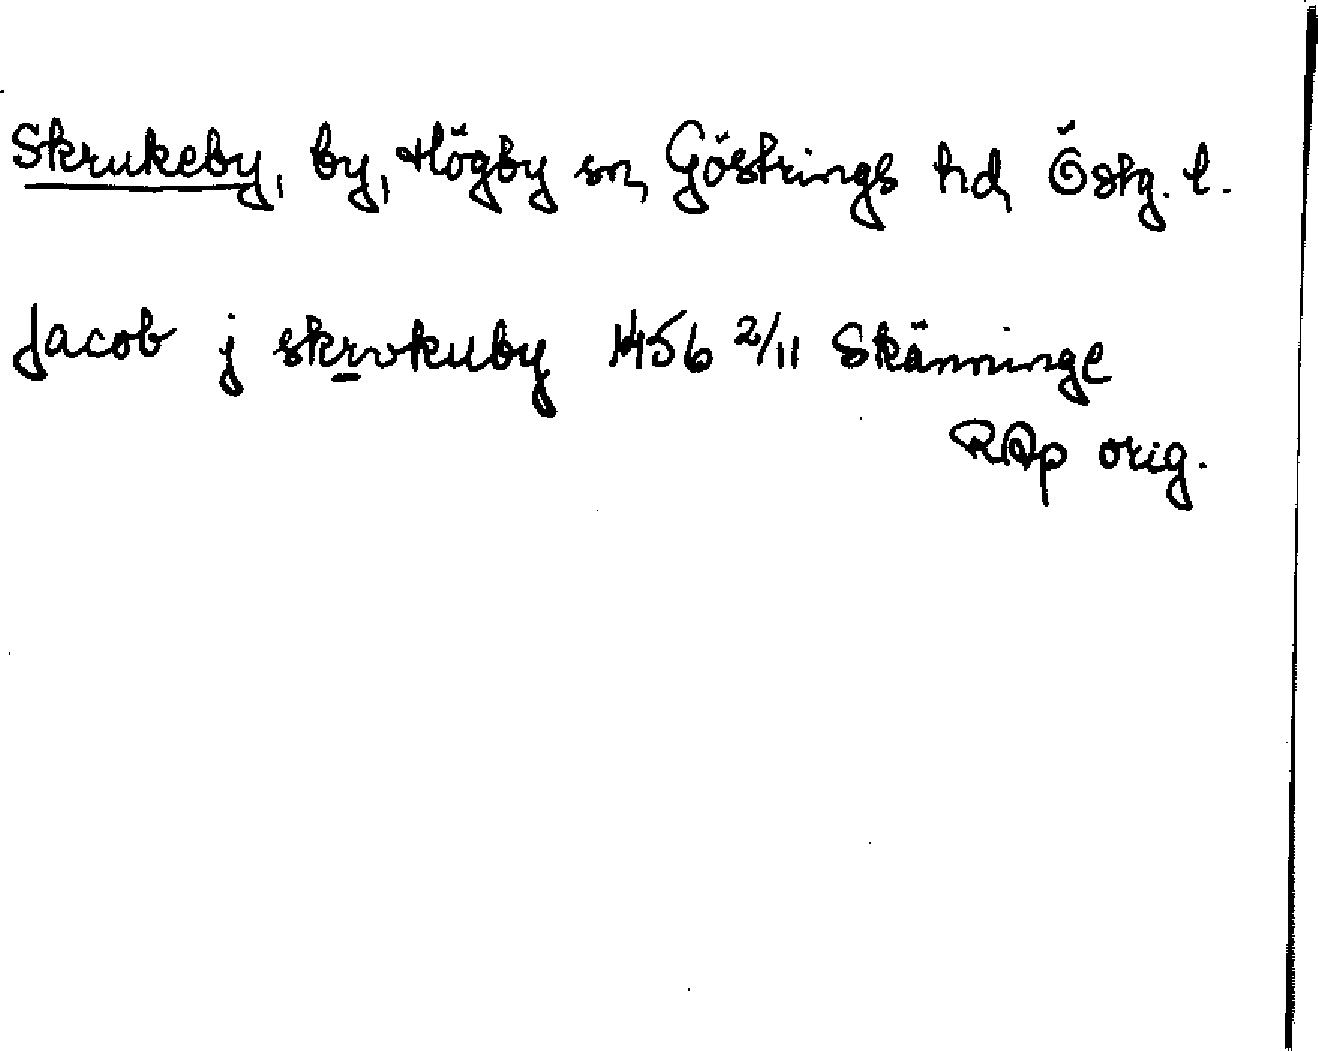 Skrukeby, by, Högby sn, Göstrings hd, Östg. l.
Jacob j skrvkuby 1456 2/11 Skänninge
RAp orig.